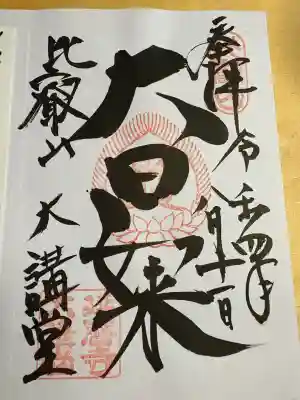 奉拝 令和四年
月十一日
大日如来
比叡山 大講堂